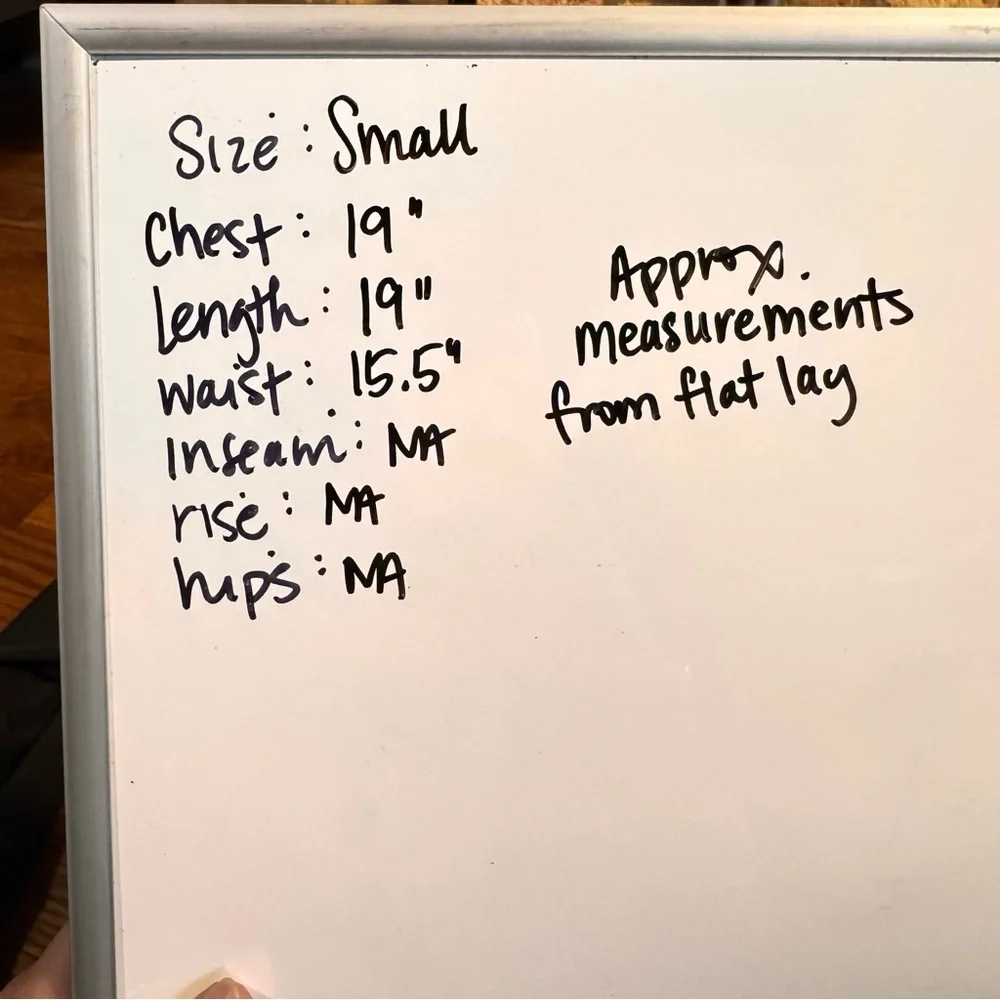 Size: Small
Chest: 19"
length: 19"
waist: 15.5"
Inseam: NA
rise: NA
hips: NA
Approx.
measurements
from flat lay